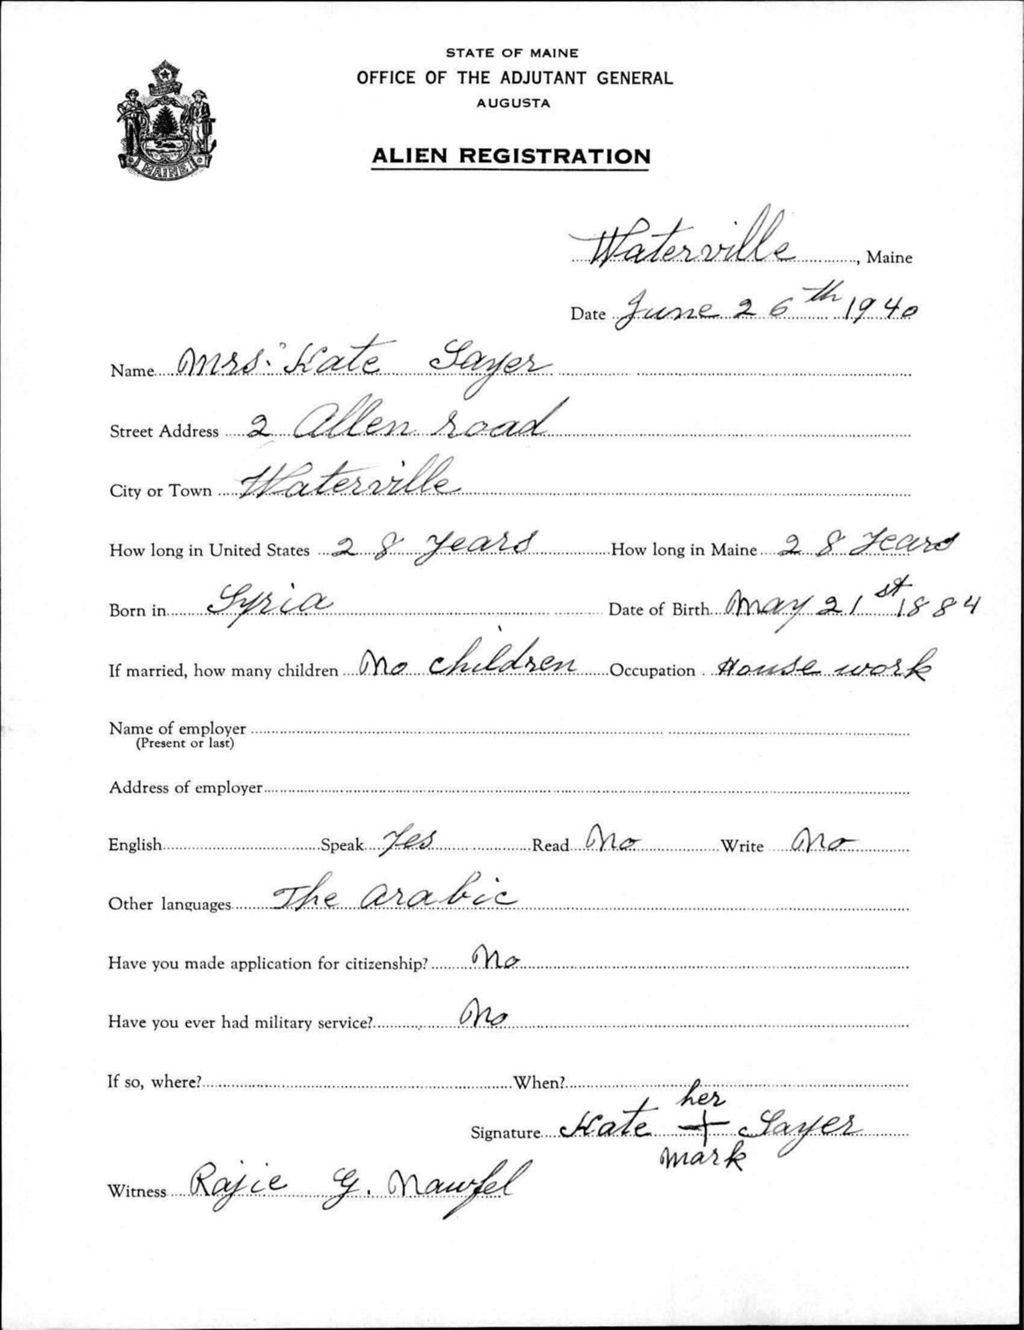 STATE OF MAINE
OFFICE OF THE ADJUTANT GENERAL
AUGUSTA
ALIEN REGISTRATION
MAINE
Waterville, Maine
Date June 26th 1940
Name Mrs. Kate Sayer
Street Address 2 Allen road
City or Town Waterville
How long in United States 28 years How long in Maine 28 Years
Born in Syria Date of Birth May 21st 1884
If married, how many children No children Occupation House work
Name of employer
(Present or last)
Address of employer
English Speak Yes Read No Write No
Other languages The arabic
Have you made application for citizenship? No
Have you ever had military service? No
If so, where? When?
her
Signature Kate + Sayer
mark
Witness Rajie G. Nawfel